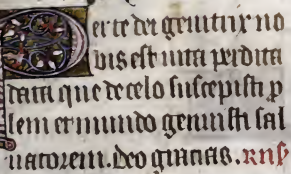 Per te dei genitrix no
bis est uita perdita
data que de celo suscepisti p
lem et mundo genuisti sal
uatorem. Deo gracias. Rn̄s